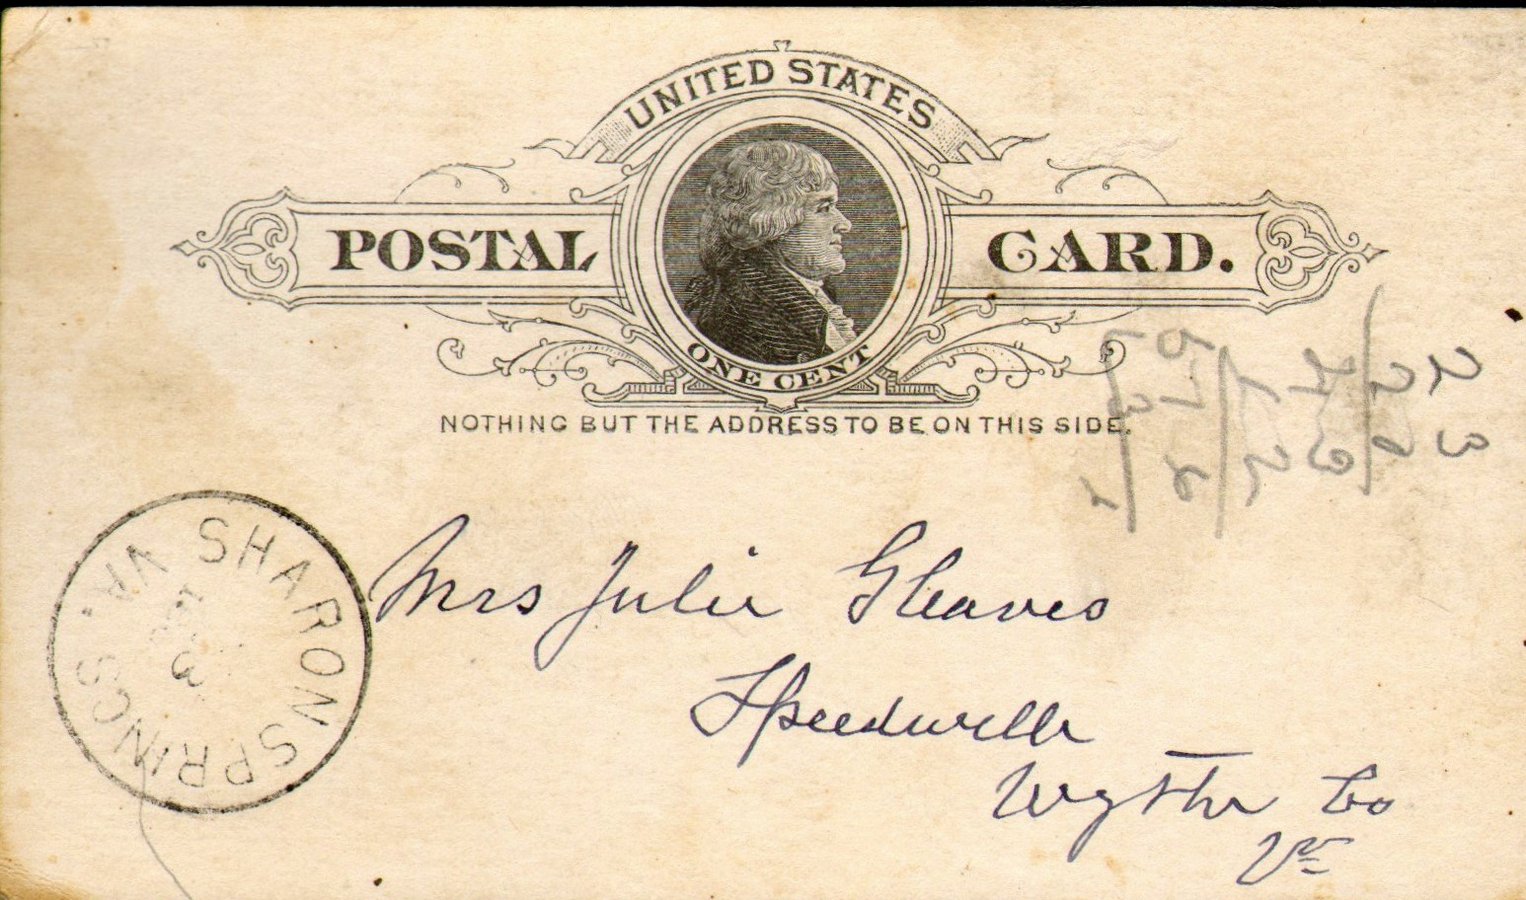 UNITED STATES
POSTAL CARD.
ONE CENT
NOTHING BUT THE ADDRESS TO BE ON THIS SIDE.
SHARON SPRINGS VA.
3
Mrs Julia Gleaves
Speedwell
Wythe Co
Va